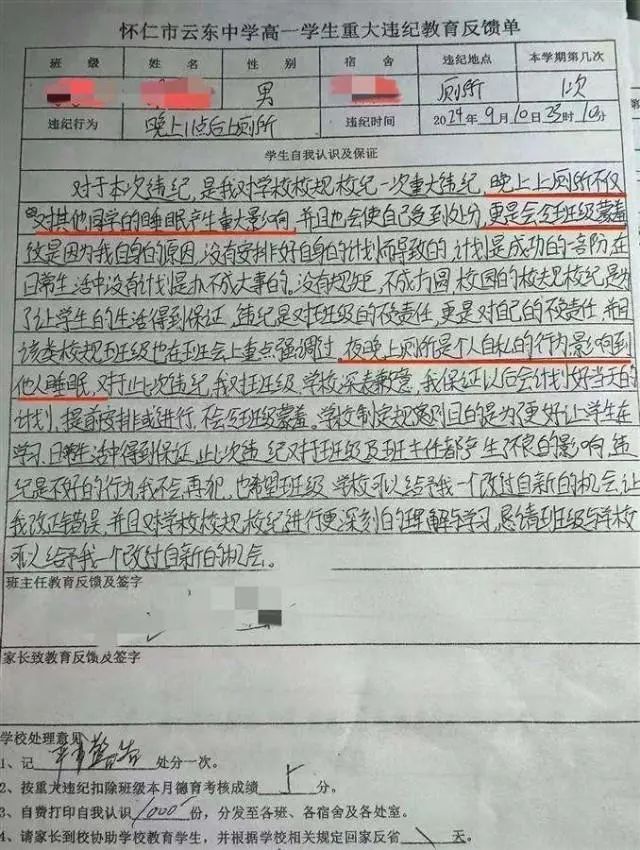 怀仁市云东中学高一学生重大违纪教育反馈单
班级 姓名 性别 宿舍 违纪地点 本学期第几次
男 厕所 1次
违纪行为 晚上11点后上厕所 违纪时间 2024年9月10日23时10分
学生自我认识及保证
对于本次违纪,是我对学校校规校纪一次重大违纪,晚上上厕所不仅
对其他同学的睡眠产生重大影响,并且也会使自己受到处分,更是会给班级蒙羞
这是因为我自身的原因,没有安排好自身的计划而导致的,计划是成功的一部阶在
日常生活中没有计划是办不成大事的。没有规矩,不成方圆,校园的校规校纪是为
了让学生的生活得到保证,违纪是对班级的不负责任,更是对自己的不负责任,并且
该类校规班级也在班会上重点强调过。夜晚上厕所是个人自私的行为,影响到
他人睡眠,对于此次违纪,我对班级,学校深表歉意,我保证以后会计划好当天的
计划,提前安排或进行,不会给班级蒙羞。学校制定规则目的是为了更好让学生在
学习、日常生活中得到保证,此次违纪对于班级及班主任都产生了不良的影响,违
纪是不好的行为,我不会再犯,也希望班级、学校可以给予我一个改过自新的机会,让
我改正错误,并且对学校校规校纪进行更深刻的理解与学习,恳请班级与学校
可以给予我一个改过自新的机会。
班主任教育反馈及签字
家长致教育反馈及签字
学校处理意见
1、记 严重警告 处分一次。
2、按重大违纪扣除班级本月德育考核成绩 5 分。
3、自费打印自我认识 1000 份,分发至各班、各宿舍及各处室。
4、请家长到校协助学校教育学生,并根据学校相关规定回家反省 \ 天。